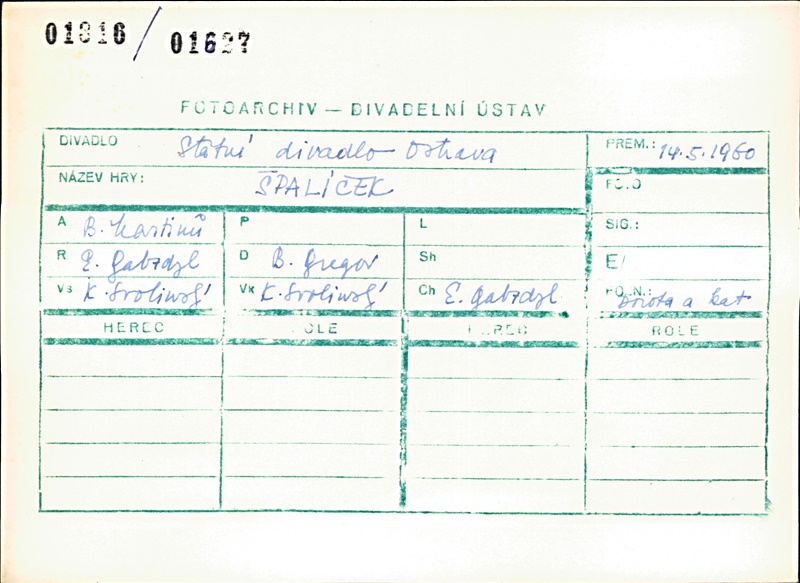 01816 / 01627
FOTOARCHIV — DIVADELNÍ ÚSTAV
DIVADLO Státní divadlo Ostrava PREM.: 14.5.1960
NÁZEV HRY: ŠPALÍČEK FOTO
A B. Martinů P L SIG.:
R E. Gabzdyl D B. Gregor Sh E/
Vs K. Svolinský Vk K. Svolinský Ch E. Gabzdyl POZN.: a kat
HEREC ROLE HEREC ROLE